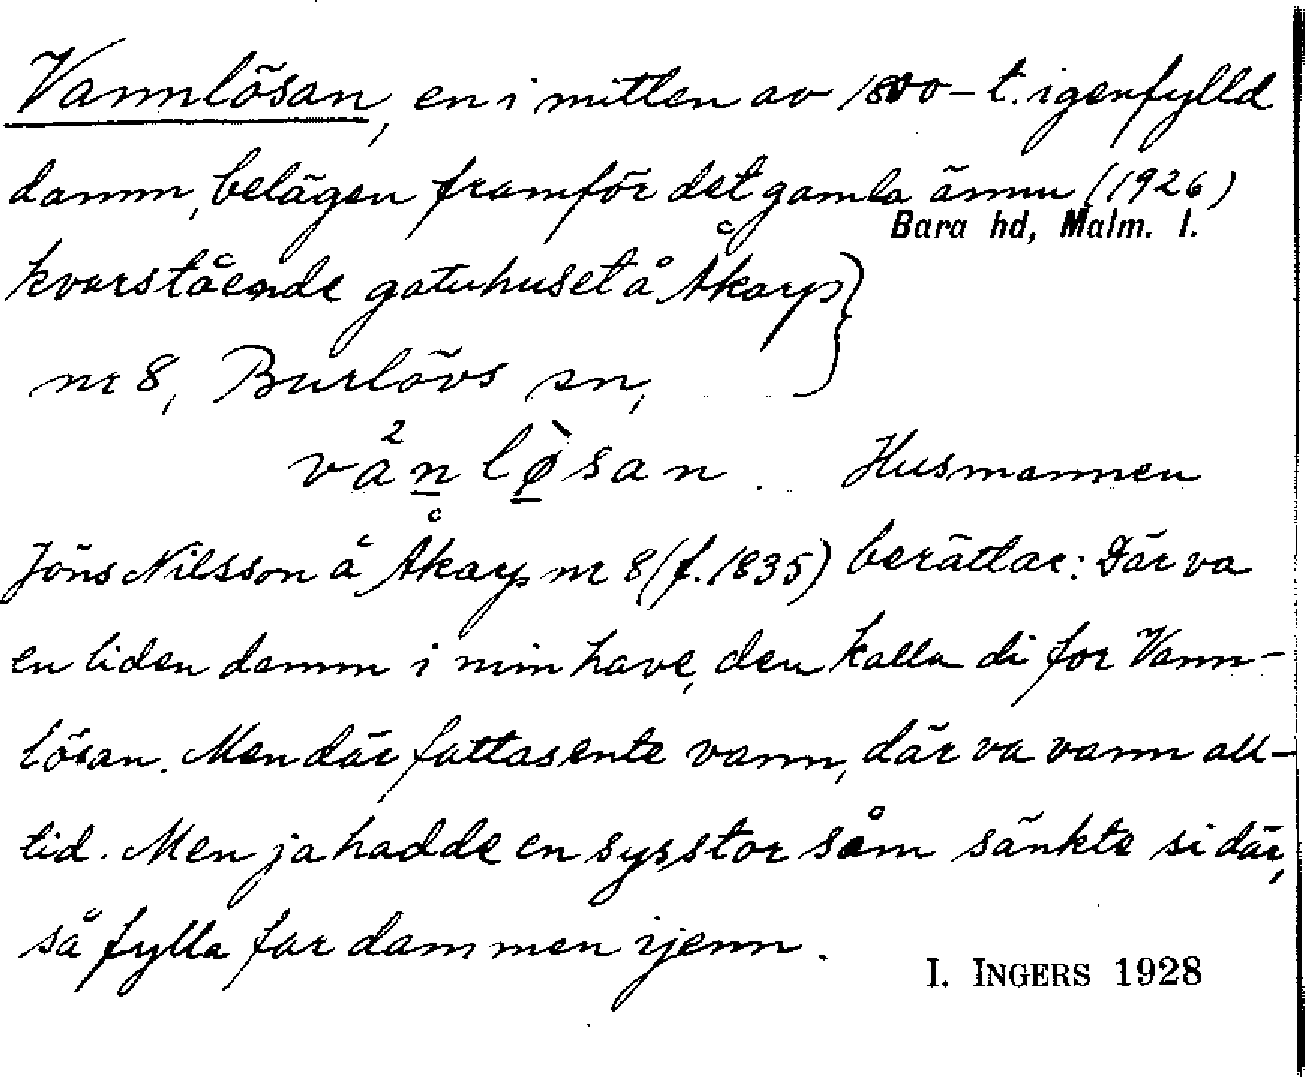 Vannlösan, en i mitten av 1800-t. igenfylld
damm, belägen framför det gamla ännu (1926)
Bara hd, Malm. l.
kvarstående gatuhuset å Åkarp
nr 8, Burlövs sn,
vånlø̀san. Husmannen
Jöns Nilsson å Åkarp nr 8 (f. 1835) berättar: Där va
en liden damm i min have, den kalla di for Vann-
lösan. Men där fattas ente vann, där va vann all-
tid. Men ja hadde en sysstor såm sänkte si där,
så fylla far dammen ijenn.
I. INGERS 1928